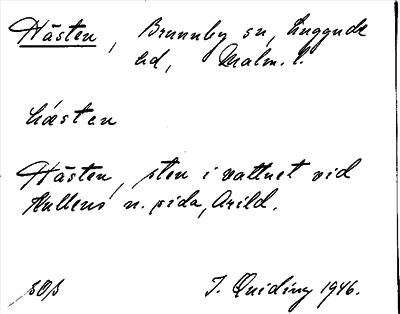 Hästen, Brunnby sn, Luggude
hd, Malm. l.
hästen
Hästen, sten i vattnet vid
Kullens n. sida, Arild.
J. Quiding 1946.